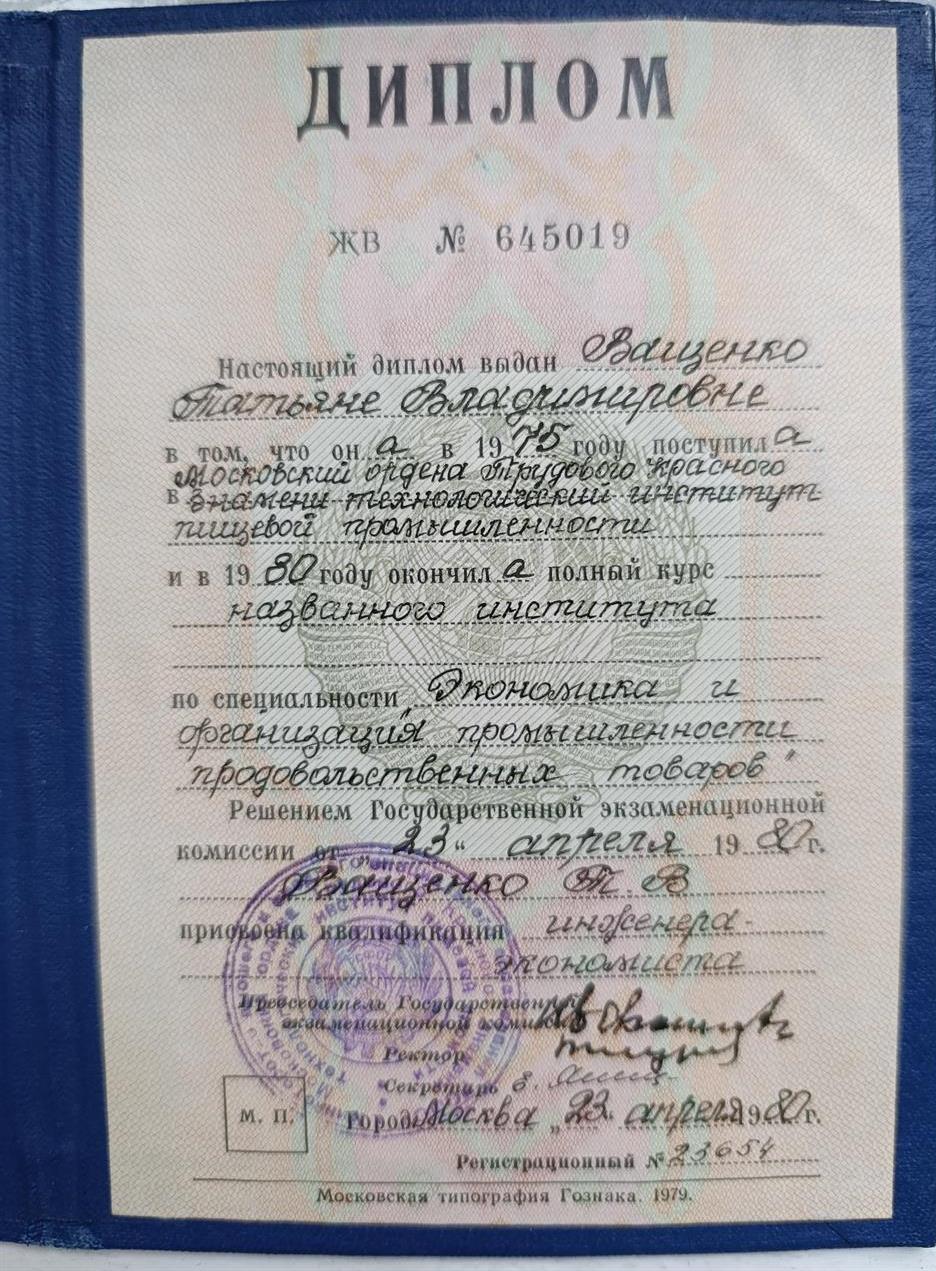 ДИПЛОМ
ЖВ № 645019
Настоящий диплом выдан Ващенко
Татьяне Владимировне
в том, что он а в 1975 году поступил а
Московский ордена Трудового Красного
в Знамени технологический институт
пищевой промышленности
и в 1980 году окончил а полный курс
названного института
по специальности „Экономика и
организация промышленности
продовольственных товаров"
Решением Государственной экзаменационной
комиссии от „23" апреля 1980 г.
Ващенко Т. В
присвоена квалификация инженера-
экономиста
Председатель Государственной
экзаменационной комиссии
Ректор
Секретарь
М. П. Город Москва „23" апреля 1980 г.
Регистрационный № 23654
Московская типография Гознака. 1979.